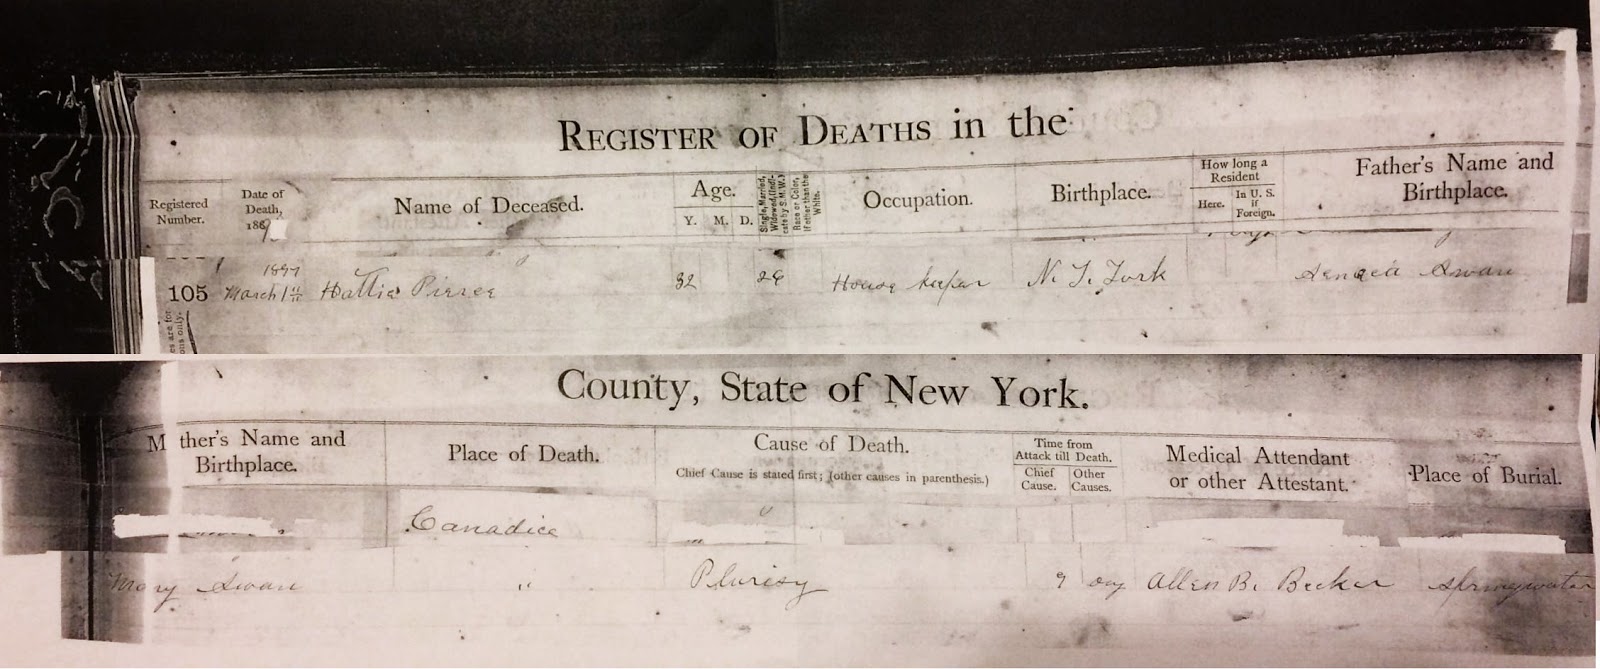 REGISTER OF DEATHS in the
Registered Number.
Date of Death, 189
Name of Deceased.
Age.
Y. M. D.
Single, Married, Widowed, (Indicate by S. M. W.)
Race or Color, if other than the White.
Occupation.
Birthplace.
How long a Resident
Here.
In U. S. if Foreign.
Father's Name and Birthplace.
1897
105 March 1 Hattie Pierce 32 House keeper N. Y. York Swan
es are for
ons only.
County, State of New York.
M ther's Name and Birthplace.
Place of Death.
Cause of Death.
Chief Cause is stated first; (other causes in parenthesis.)
Time from Attack till Death.
Chief Cause.
Other Causes.
Medical Attendant or other Attestant.
Place of Burial.
Canadice
Mary Swan " Plurisy 9 day Allen B. Becker Springwater